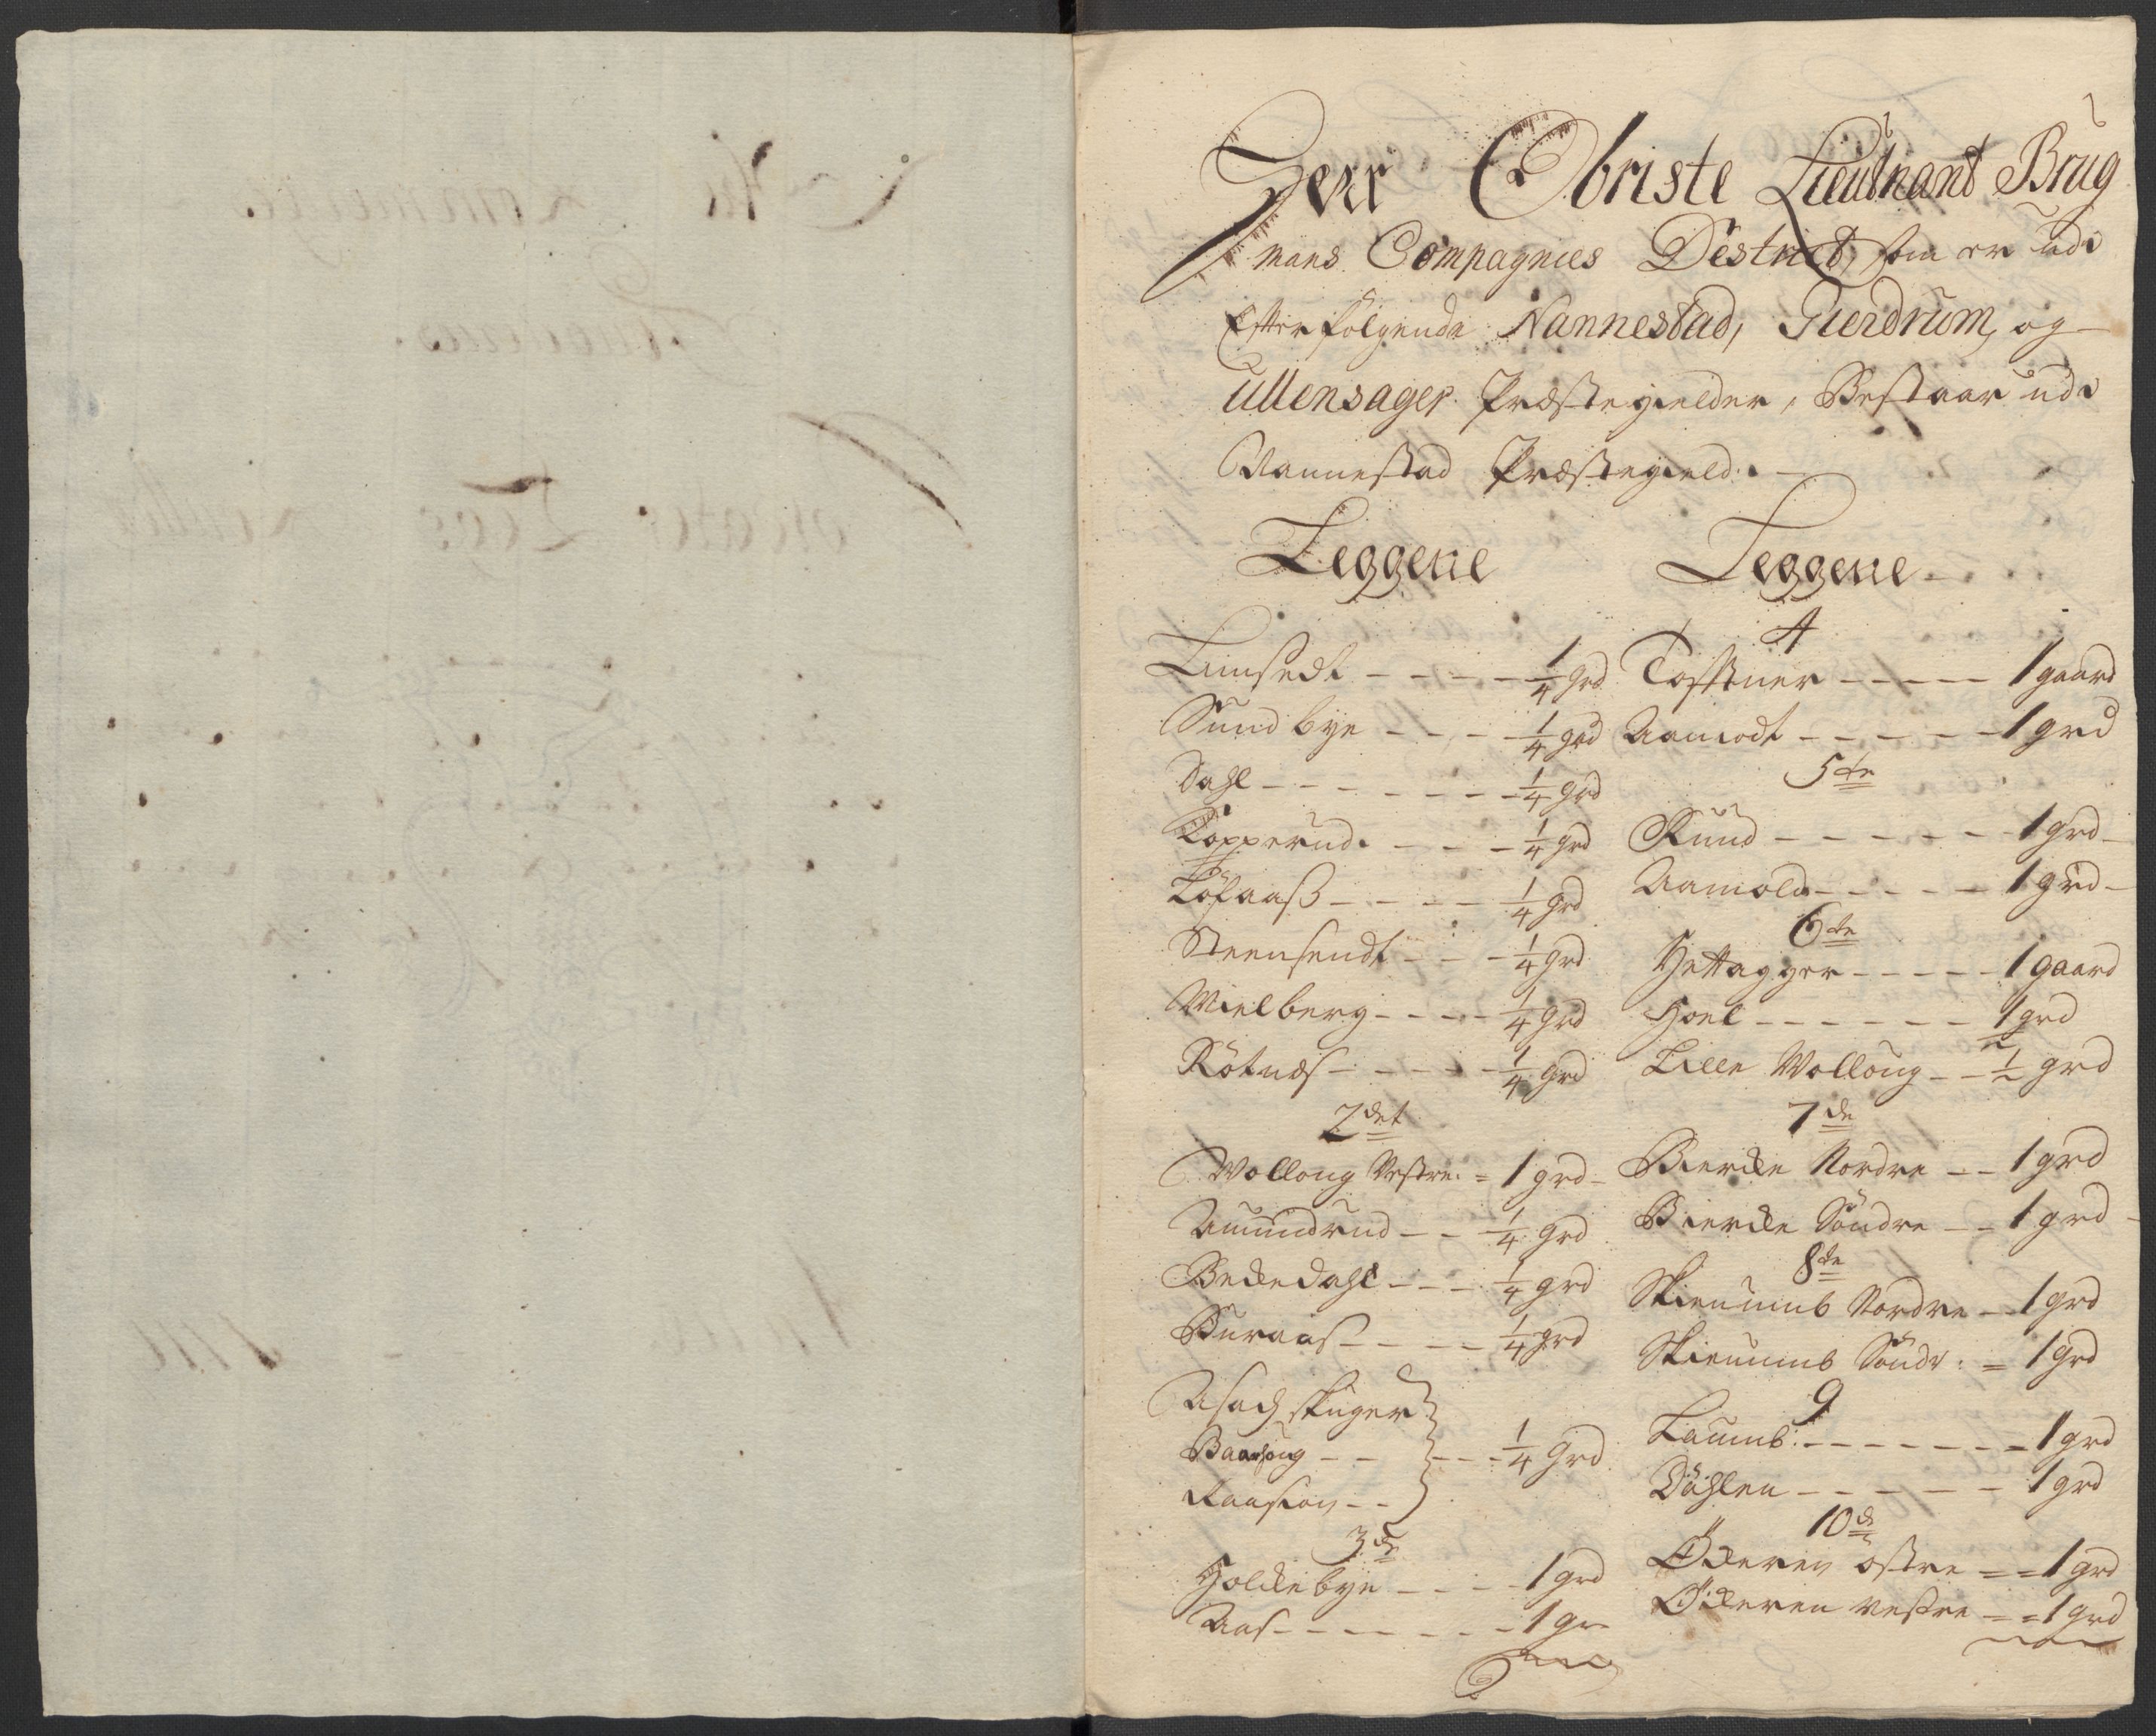 Herr Obriste Lieutnant Brug
mans Compagnies Destrict, som er udi
Efterfølgende Nannestad, Gierdrum, og
Ullensager Præstegielder, Bestaar udi
Nannestad Præstegield.
Leggene
Sundbye - - - 1/4 grd
Dahl - - - - - - - 1/4 grd
Kopperud. - - - 1/4 grd
Løfaas - - - - 1/4 grd
Steensendt - - - 1/4 grd
Mielberg - - - - 1/4 grd
Røtnæs - - - - - 1/4 grd
2det
Wolloug Vestre = 1 grd
Amundrud - - 1/4 grd
Bekkedahl - - - 1/4 grd
Buraas - - - - 1/4 grd
- - - 1/4 grd
3de
Holkebye - - - - 1 grd
Aas - - - - - - - 1 gr
Leggene
4
- - - - - 1 gaard
Aamodt - - - - - 1 grd
5te
Ruud - - - - - - 1 grd
Aamold - - - - - 1 grd
6te
Hettagger - - - - - 1 gaard
Hoel - - - - - - 1/2 grd
Lille Wolloug - - 1/2 grd
7de
Bierke Nordre - - 1 grd
Bierke Søndre - - 1 grd
8te
Skiennumb Nordre - 1 grd
Skiennumb Søndr: = 1 grd
9
Laumb: - - - - - - - 1 grd
Dahlen - - - - - - 1 grd
10de
Økkeren østre = = 1 grd
Økkeren vestre = = 1 grd